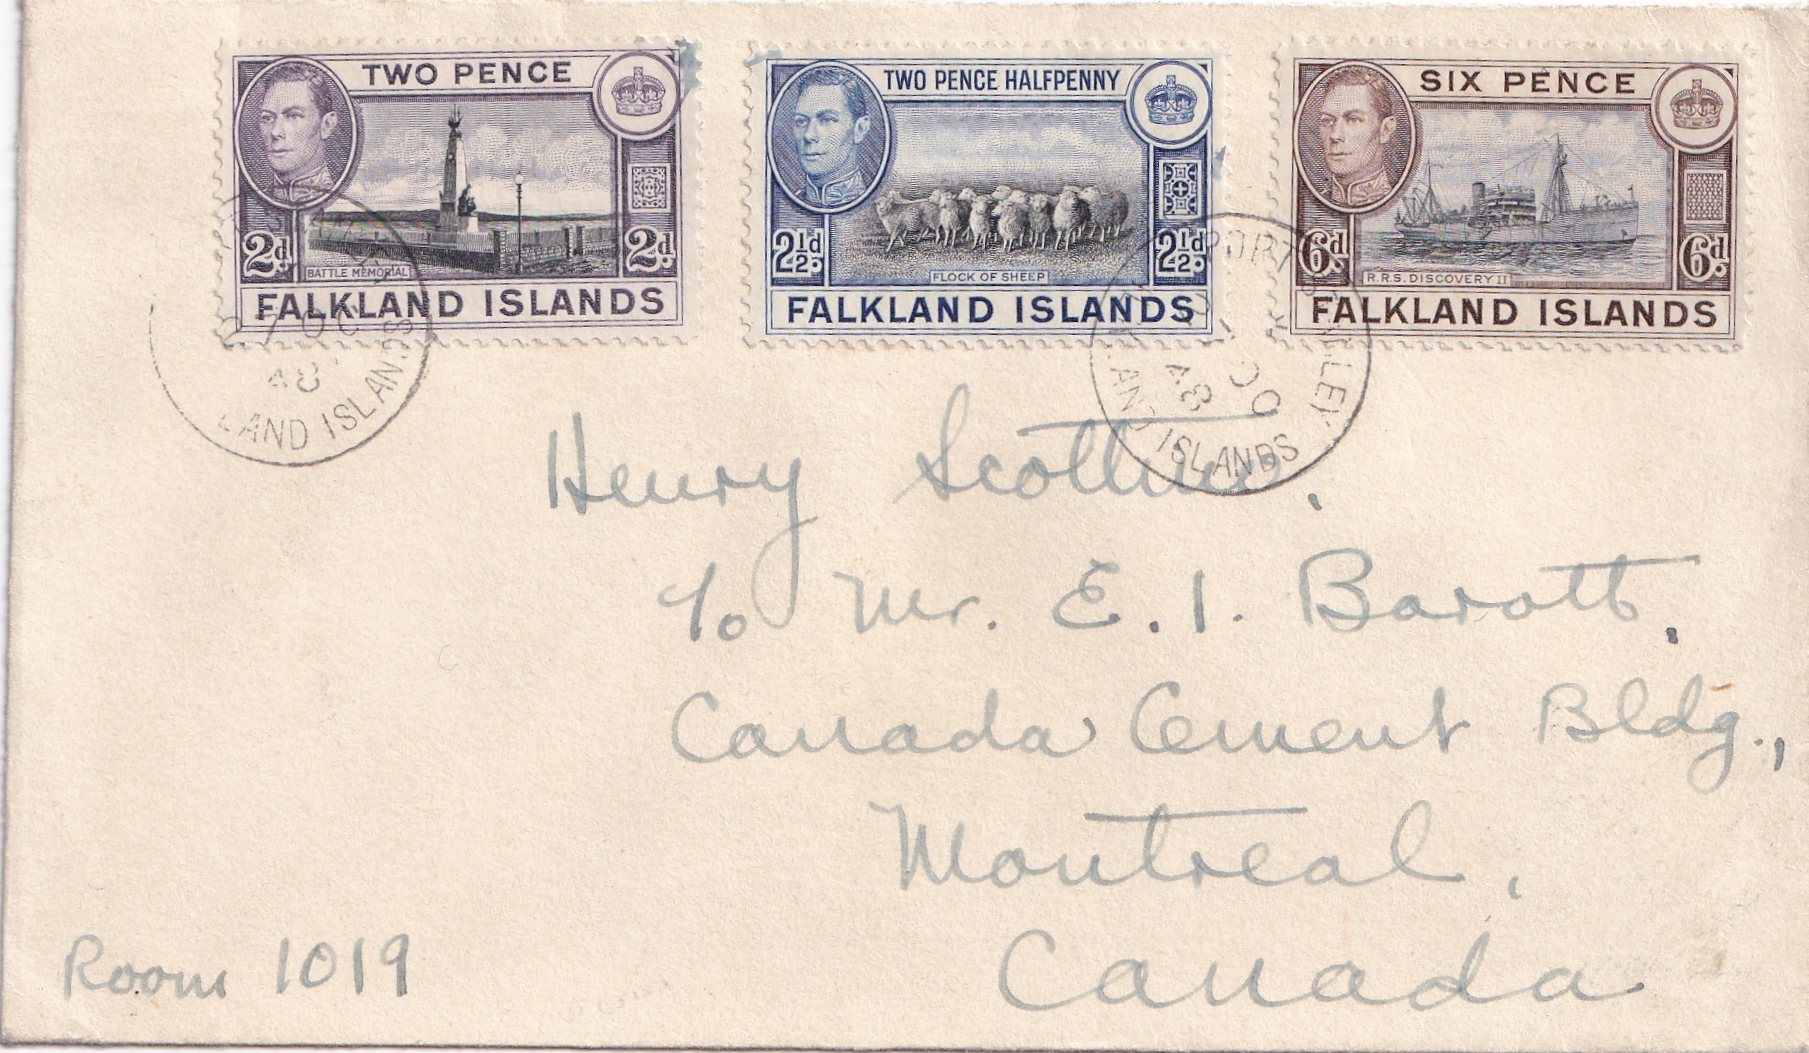 TWO PENCE
2d 2d
BATTLE MEMORIAL
FALKLAND ISLANDS
TWO PENCE HALFPENNY
2½d 2½d
FLOCK OF SHEEP
FALKLAND ISLANDS
SIX PENCE
6d 6d
R.R.S. DISCOVERY II
FALKLAND ISLANDS
OC
48
LAND ISLANDS
PORT STANLEY
OC
48
LAND ISLANDS
Henry
℅ Mr. E. I. Barott,
Canada Cement Bldg.,
Montreal,
Canada
Room 1019